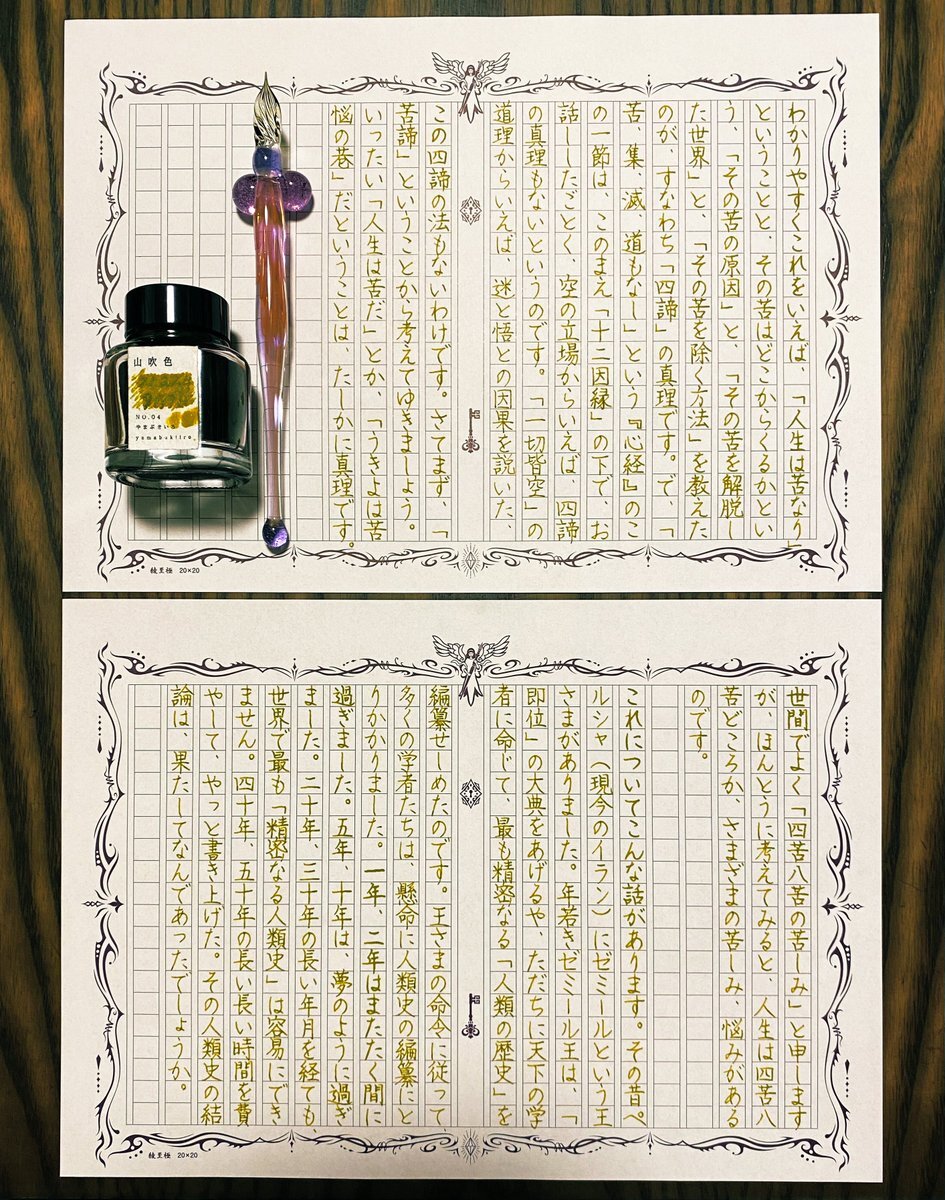 わかりやすくこれをいえば、「人生は苦なり」
ということと、その苦はどこからくるかとい
う、「その苦の原因」と、「その苦を解脱し
た世界」と、「その苦を除く方法」を教えた
のが、すなわち「四諦」の真理です。で、「
苦、集、滅、道もなし」という『心経』のこ
の一節は、このまえ「十二因縁」の下で、お
話ししたごとく、空の立場からいえば、四諦
の真理もないというのです。「一切皆空」の
道理からいえば、迷と悟との因果を説いた、
この四諦の法もないわけです。さてまず、「
苦諦」ということから考えてゆきましょう。
いったい「人生は苦だ」とか、「うきよは苦
悩の巷」だということは、たしかに真理です。
山吹色
NO.04
やまぶきいろ
yamabukiiro
綾里極 20×20
世間でよく「四苦八苦の苦しみ」と申します
が、ほんとうに考えてみると、人生は四苦八
苦どころか、さまざまの苦しみ、悩みがある
のです。
これについてこんな話があります。その昔ペ
ルシャ(現今のイラン)にゼミールという王
さまがありました。年若き、ゼミール王は、「
即位」の大典をあげるや、ただちに天下の学
者に命じて、最も精密なる「人類の歴史」を
編纂せしめたのです。王さまの命令に従って、
多くの学者たちは、懸命に人類史の編纂にと
りかかりました。一年、二年はまたたく間に
過ぎました。五年、十年は、夢のように過ぎ
ました。二十年、三十年の長い年月を経ても、
世界で最も「精密なる人類史」は容易にでき
ません。四十年、五十年の長い長い時間を費
やして、やっと書き上げた。その人類史の結
論は、果たしてなんであったでしょうか。
綾里極 20×20